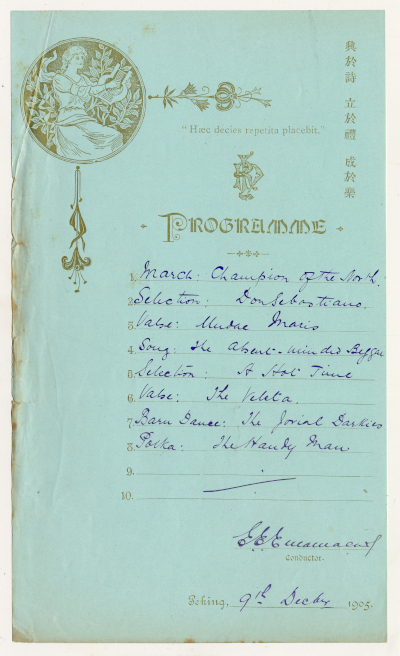 興於詩 立於禮 成於樂
"Hæc decies repetita placebit."
PROGRAMME
1. March: Champion of the North.
2. Selection: Don Sebastiano.
3. Valse: Undae Maris
4. Song: The Absent-minded Beggar
5. Selection: A Hot Time
6. Valse: The Veleta.
7. Barn Dance: The Jovial Darkies
8. Polka: The Handy Man
9.
10.
Conductor.
Peking, 9th Decbr 1905.